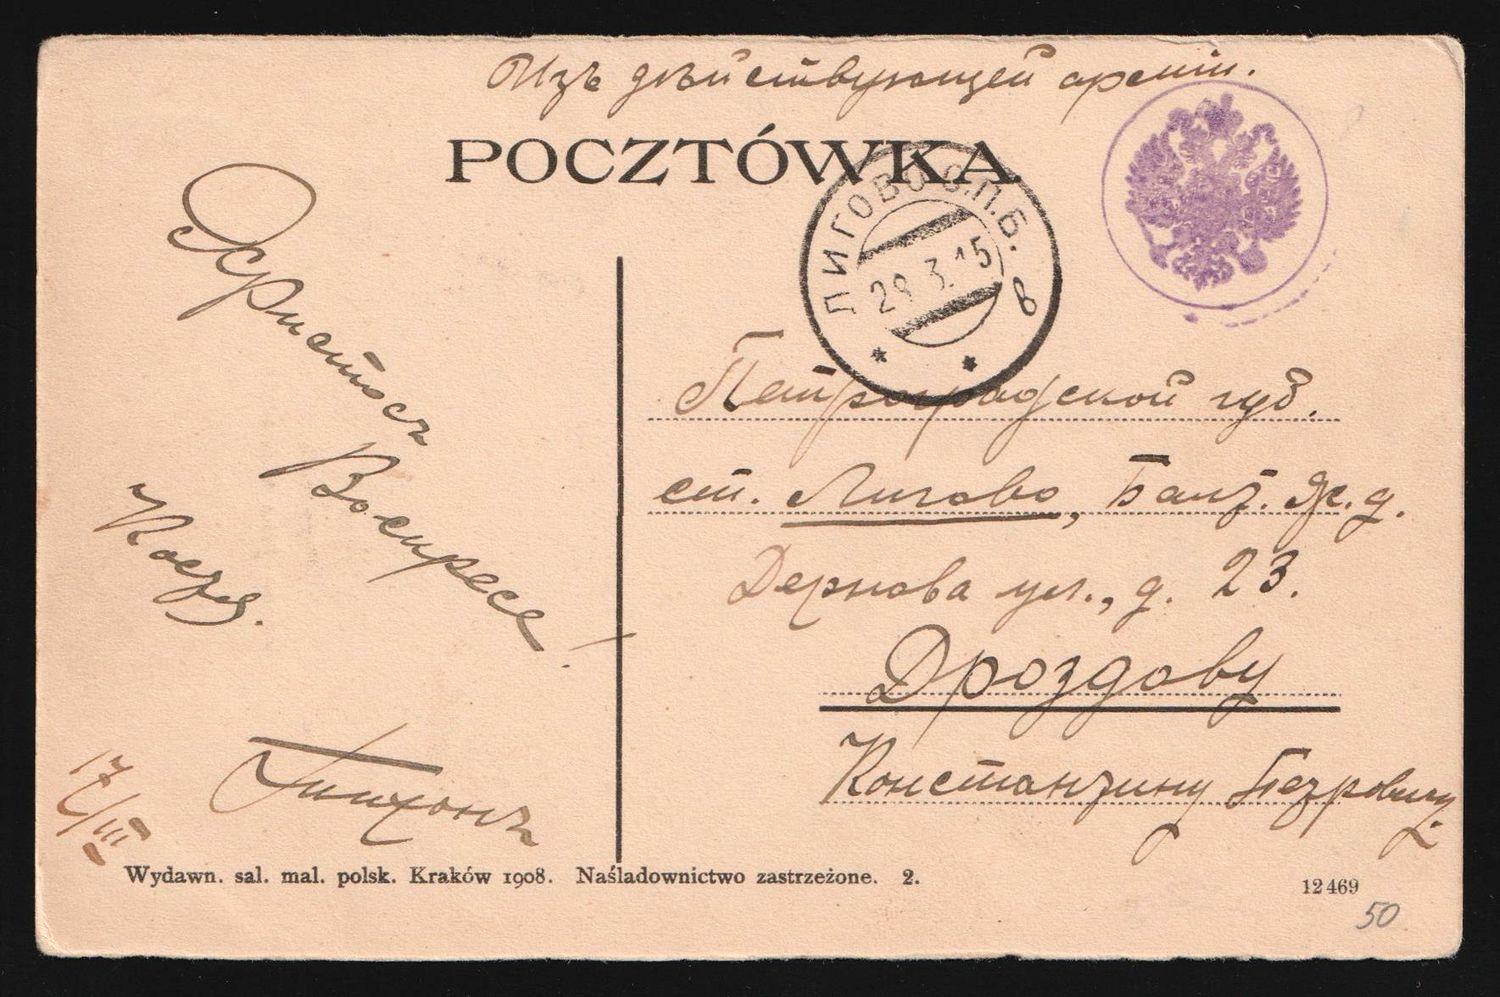 Изъ дѣйствующей арміи.
POCZTÓWKA
ЛИГОВО С.П.Б.
29.3.15
в
Христосъ
Воскресе!
Тихонъ
17/III
Петроградской губ.
ст. Лигово, Балт. ж. д.
Дернова ул., д. 23.
Дроздову
Константину Петровичу.
Wydawn. sal. mal. polsk. Kraków 1908. Naśladownictwo zastrzeżone. 2.
12469
50